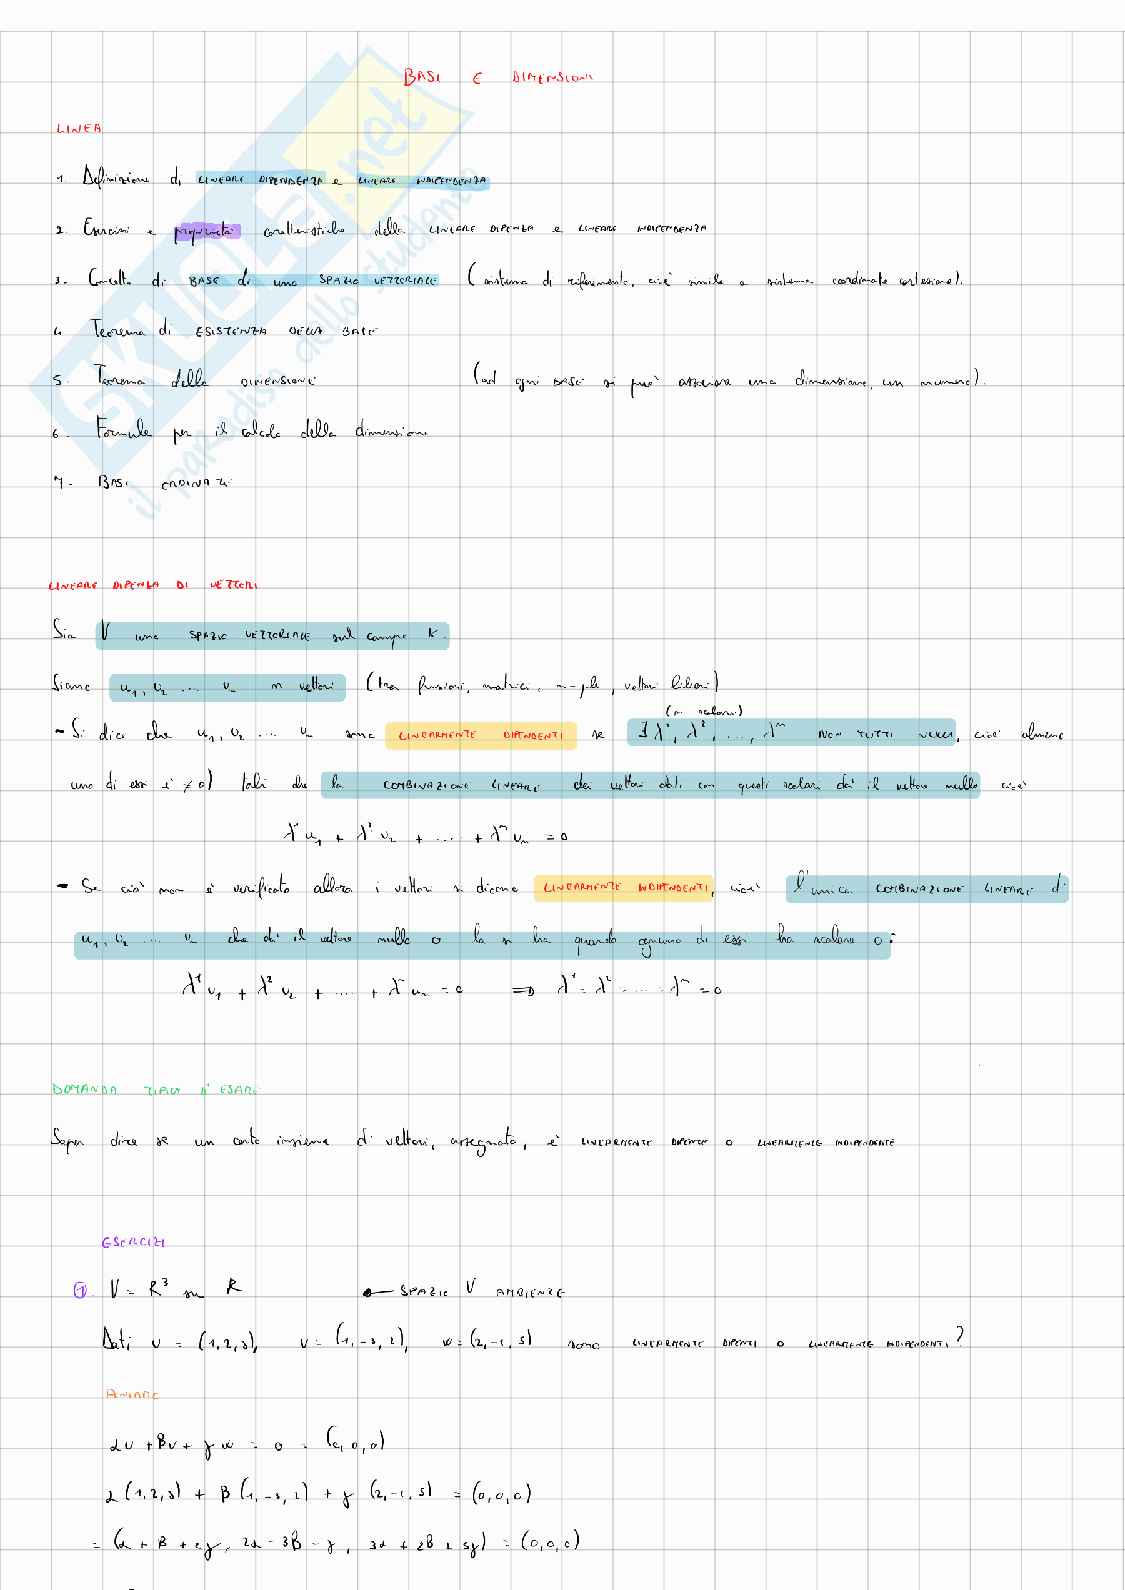 BASI E DIMENSIONI
LINEA
1. Definizione di LINEARE DIPENDENZA e LINEARE INDIPENDENZA
2. Esercizi e proprietà caratteristiche della LINEARE DIPENZA e LINEARE INDIPENDENZA
3. Concetto di BASE di uno SPAZIO VETTORIALE (sistema di riferimento, cioè simile a sistema coordinate cartesiane).
4. Teorema di ESISTENZA DELLA BASE
5. Teorema della DIMENSIONE (ad ogni BASE si può associare una dimensione, un numero).
6. Formule per il calcolo della dimensione
7. BASI ORDINATE
LINEARE DIPENZA DI VETTORI
Sia V uno SPAZIO VETTORIALE sul campo K.
Siano u1, u2 ... un n vettori (tra funzioni, matrici, n-ple, vettori liberi)
(n scalari)
- Si dice che u1, u2 ... un sono LINEARMENTE DIPENDENTI se ∃ λ¹, λ², ..., λⁿ NON TUTTI NULLI, cioè almeno
uno di essi è ≠ 0) tali che la COMBINAZIONE LINEARE dei vettori dati con questi scalari dà il vettore nullo cioè
λ¹u1 + λ²u2 + .... + λⁿun = 0
- Se ciò non è verificato allora i vettori si dicono LINEARMENTE INDIPENDENTI, cioè l'unica COMBINAZIONE LINEARE di
u1, u2 ... un che dà il vettore nullo 0 la si ha quando ognuno di essi ha scalare 0:
λ¹u1 + λ²u2 + .... + λⁿun = 0 ⇒ λ¹ = λ² ..... λⁿ = 0
DOMANDA TIPICA D'ESAME
Saper dire se un certo insieme di vettori, assegnato, è LINEARMENTE DIPENTE O LINEARMENTE INDIPENDENTE
ESERCIZI
1. V = R³ su R ← SPAZIO V AMBIENTE
Dati u = (1,2,3), v = (1,-3,2), w = (2,-1,5) sono LINEARMENTE DIPENTI O LINEARMENTE INDIPENDENTI?
αu + βv + γw = 0 = (0,0,0)
α(1,2,3) + β(1,-3,2) + γ(2,-1,5) = (0,0,0)
= (α + β + 2γ, 2α - 3β - γ, 3α + 2β + 5γ) = (0,0,0)
SKUOLA.net
il paradiso dello studente